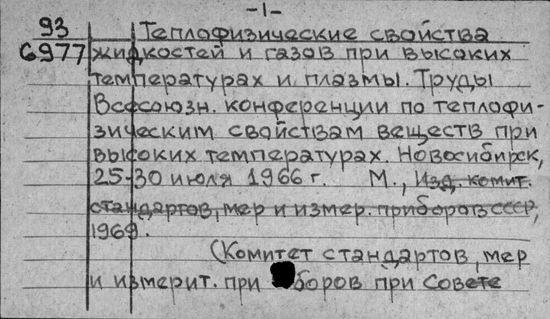 -1-
93 Теплофизические свойства
6977 жидкостей и газов при высоких
температурах и плазмы. Труды
Всесоюзн. конференции по теплофи-
зическим свойствам веществ при
высоких температурах. Новосибирск,
25-30 июля 1966 г. М., Изд. комит.
стандартов, мер и измер. приборов СССР,
1969.
(Комитет стандартов, мер
и измерит. при боров при Совете